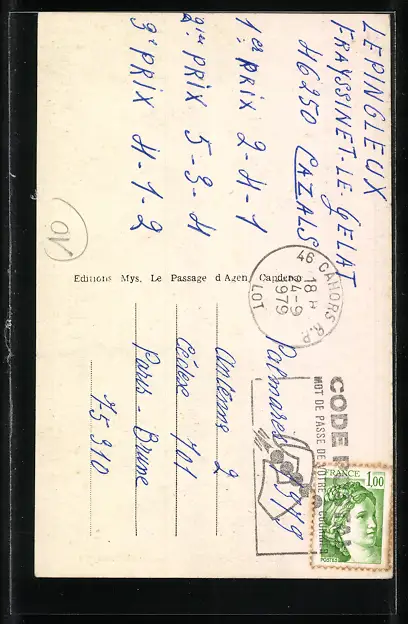 LEPINGLEUX
FRAYSSINET-LE GELAT
46250 CAZALS
1er PRIX 2-4-1
2ie PRIX 5-3-4
3e PRIX 4-1-2
Editions Mys. Le Passage d'Agen
46 CAHORS R.P.
18 H
4-9
1979
LOT
Palmares 1979
Antenne 2
Cédex 101
Paris - Brune
75 910
CODE
MOT DE PASSE DE VOTRE COURRIER
FRANCE
1,00
POSTES